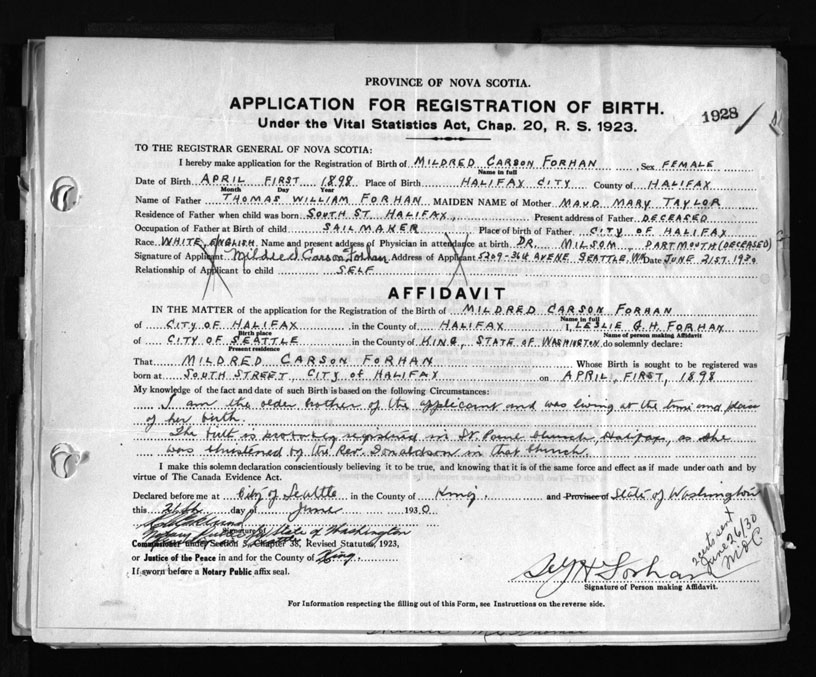 PROVINCE OF NOVA SCOTIA.
APPLICATION FOR REGISTRATION OF BIRTH.
1928
Under the Vital Statistics Act, Chap. 20, R. S. 1923.
TO THE REGISTRAR GENERAL OF NOVA SCOTIA:
I hereby make application for the Registration of Birth of MILDRED CARSON FORHAN, Sex FEMALE
Name in full
Date of Birth APRIL FIRST 1898 Place of Birth HALIFAX CITY County of HALIFAX
Month Day Year
Name of Father THOMAS WILLIAM FORHAN MAIDEN NAME of Mother MAUD MARY TAYLOR
Residence of Father when child was born SOUTH ST. HALIFAX, Present address of Father DECEASED
Occupation of Father at Birth of child SAILMAKER Place of birth of Father CITY OF HALIFAX
Race WHITE, ENGLISH Name and present address of Physician in attendance at birth DR. MILSOM, DARTMOUTH (DECEASED)
Signature of Applicant Mildred Carson Forhan Address of Applicant 5209-36th AVENE SEATTLE, WN Date JUNE 21ST. 1930
Relationship of Applicant to child SELF
AFFIDAVIT
IN THE MATTER of the application for the Registration of the Birth of MILDRED CARSON FORHAN
Name in full
of CITY OF HALIFAX in the County of HALIFAX I, LESLIE G. H. FORHAN
Birth place Name of person making Affidavit
of CITY OF SEATTLE in the County of KING, STATE OF WASHINGTON do solemnly declare:
Present residence
That MILDRED CARSON FORHAN Whose Birth is sought to be registered was
born at SOUTH STREET, CITY OF HALIFAX on APRIL, FIRST, 1898
My knowledge of the fact and date of such Birth is based on the following Circumstances:
I am the older brother of the applicant and was living at the time and place
of her birth.
The birth is probably registered in St. Pauls Church, Halifax, as she
was christened by the Rev. Donaldson in that church.
I make this solemn declaration conscientiously believing it to be true, and knowing that it is of the same force and effect as if made under oath and by
virtue of The Canada Evidence Act.
Declared before me at City of Seattle in the County of King. and Province of State of Washington
this day of June 1930
Signature of
Notary Public State of Washington
Commissioner under Section 3, Chapter 38, Revised Statutes, 1923,
or Justice of the Peace in and for the County of King.
If sworn before a Notary Public affix seal.
Forhan
Signature of Person making Affidavit.
sent
June 26/30
For Information respecting the filling out of this Form, see Instructions on the reverse side.